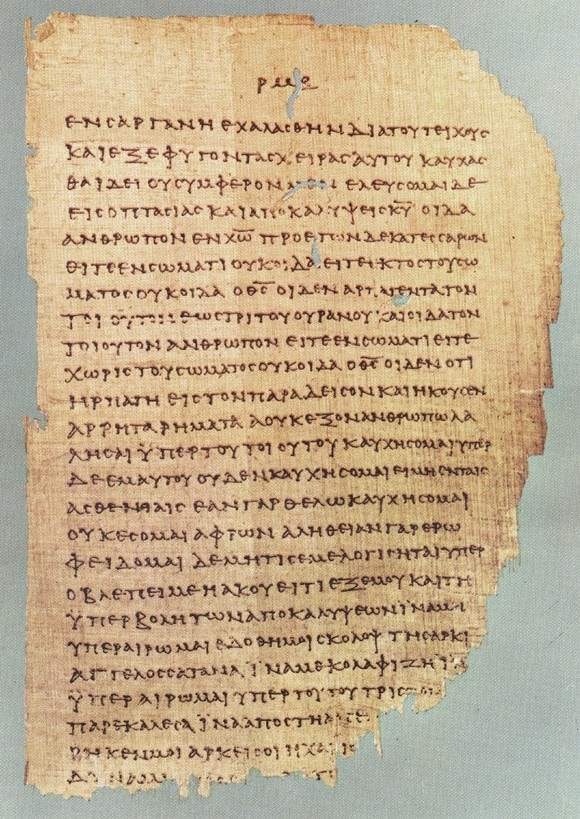 ΡΜΕ
ΕΝΣΑΡΓΑΝΗΕΧΑΛΑΣΘΗΝΔΙΑΤΟΥΤΕΙΧΟΥΣ
ΚΑΙΕΞΕΦΥΓΟΝΤΑΣΧΕΙΡΑΣΑΥΤΟΥ ΚΑΥΧΑΣ
ΘΑΙΔΕΙ ΟΥΣΥΜΦΕΡΟΝ ΕΛΕΥΣΟΜΑΙΔΕ
ΕΙΣΟΠΤΑΣΙΑΣ ΚΑΙΑΠΟΚΑΛΥΨΕΙΣΚ̅Υ̅ ΟΙΔΑ
ΑΝΘΡΩΠΟΝ ΕΝΧ̅Ω̅ ΠΡΟΕΤΩΝΔΕΚΑΤΕΣΣΑΡΩΝ
ΕΙΤΕΕΝΣΩΜΑΤΙΟΥΚΟΙΔΑ ΕΙΤΕΕΚΤΟΣΤΟΥΣΩ
ΜΑΤΟΣΟΥΚΟΙΔΑ ΟΘ̅Σ̅ ΟΙΔΕΝ ΑΡΠΑΓΕΝΤΑΤΟΝ
ΤΟΙΟΥΤΟΝ ΕΩΣΤΡΙΤΟΥΟΥΡΑΝΟΥ ΚΑΙΟΙΔΑΤΟΝ
ΤΟΙΟΥΤΟΝ ΑΝΘΡΩΠΟΝ ΕΙΤΕΕΝΣΩΜΑΤΙΕΙΤΕ
ΧΩΡΙΣΤΟΥΣΩΜΑΤΟΣΟΥΚΟΙΔΑ ΟΘ̅Σ̅ΟΙΔΕΝΟΤΙ
ΗΡΠΑΓΗ ΕΙΣΤΟΝΠΑΡΑΔΕΙΣΟΝΚΑΙΗΚΟΥΣΕΝ
ΑΡΡΗΤΑΡΗΜΑΤΑ ΑΟΥΚΕΞΟΝΑΝΘΡΩΠΩΛΑ
ΛΗΣΑΙ ΫΠΕΡΤΟΥΤΟΙΟΥΤΟΥΚΑΥΧΗΣΟΜΑΙΥΠΕΡ
ΔΕΕΜΑΥΤΟΥΟΥΔΕΝΚΑΥΧΗΣΟΜΑΙΕΙΜΗΕΝΤΑΙΣ
ΑΣΘΕΝΙΑΙΣ ΕΑΝΓΑΡΘΕΛΩΚΑΥΧΗΣΟΜΑΙ
ΟΥΚΕΣΟΜΑΙΑΦΡΩΝ ΑΛΗΘΕΙΑΝΓΑΡΕΡΩ
ΦΕΙΔΟΜΑΙ ΔΕΜΗΤΙΣΕΜΕΛΟΓΙΣΗΤΑΙΥΠΕΡ
ΟΒΛΕΠΕΙΜΕΗΑΚΟΥΕΙΤΙΕΞΕΜΟΥΚΑΙΤΗ
ΫΠΕΡΒΟΛΗΤΩΝΑΠΟΚΑΛΥΨΕΩΝΪΝΑΜΗ
ΥΠΕΡΑΙΡΩΜΑΙΕΔΟΘΗΜΟΙΣΚΟΛΟΨ ΤΗΣΑΡΚΙ
ΑΓΓΕΛΟΣΣΑΤΑΝΑ ΪΝΑΜΕΚΟΛΑΦΙΖΗΪΝΑ
ΫΠΕΡΑΙΡΩΜΑΙΥΠΕΡΤΟΥΤΟΥΤΡΙΣ
ΠΑΡΕΚΑΛΕΣΑΪΝΑΑΠΟΣΤΗΑΠ
ΡΗΚΕΝΜΟΙ ΑΡΚΕΙΣΟΙΗΧΑΡΙΣ
ΔΥΝΑΜΙ